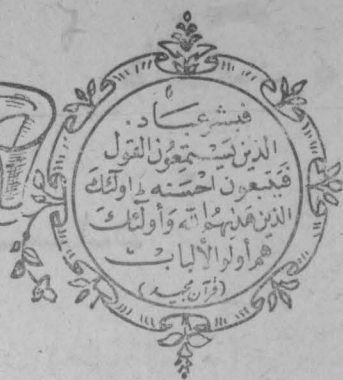 فبشر عباد.
الذين يستمعون القول
فيتبعون احسنه ط اولٓئك
الذين هدٰىهم الله وأولٓئك
هم أولو الألباب
(قرآن مجید)